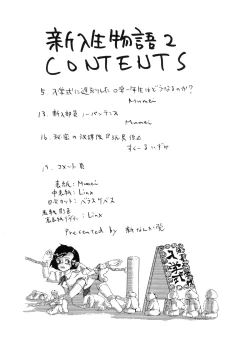 新入生物語2
CONTENTS
5. 入学式に遅刻した小学一年生はどうなるのか?
Mumei
13. 新入部員ノーパンテニス
Mumei
16. 秘密の放課後
19. コメント集
表紙: Mumei
中表紙: Linx
ロゴカット: ベラスケベス
裏表紙
Linx
Presented by
入学式